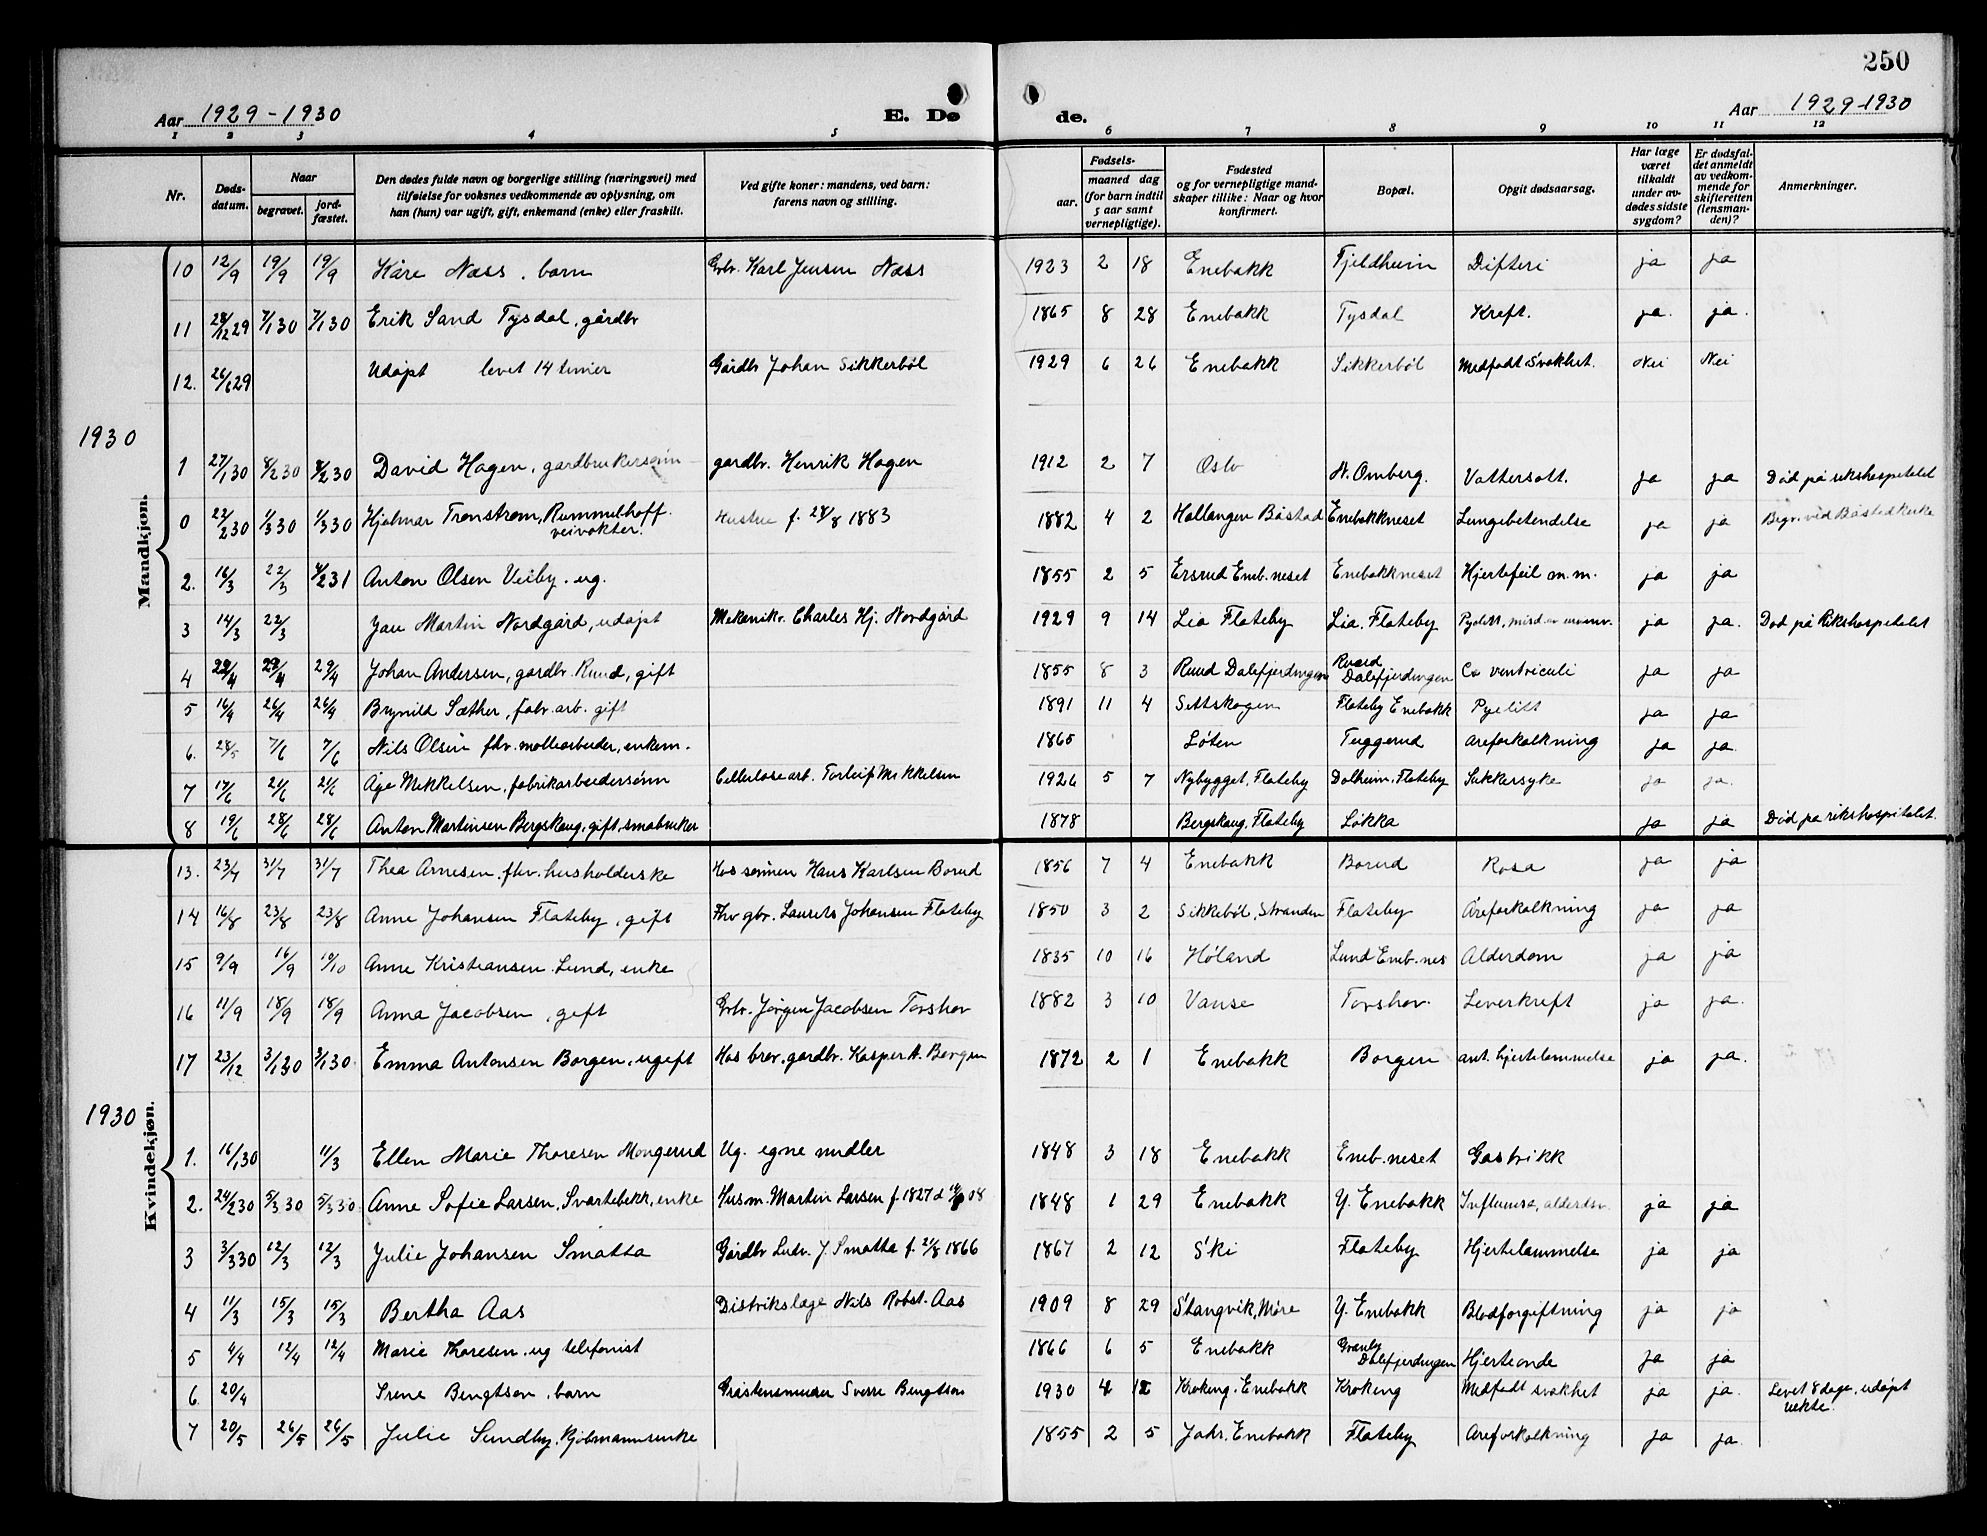 250
Aar 1929 - 1930 E. Dø de. Aar 1929-1930
1 2 3 4 5 6 7 8 9 10 11 12
Nr. Døds-datum. Naar begravet. jord-fæstet. Den dødes fulde navn og borgerlige stilling (næringsvei) med tilføielse for voksnes vedkommende av oplysning, om han (hun) var ugift, gift, enkemand (enke) eller fraskilt. Ved gifte koner: mandens, ved barn: farens navn og stilling. Fødsels- aar. maaned dag (for barn indtil 5 aar samt vernepligtige). Fødested og for vernepligtige mandskaper tillike: Naar og hvor konfirmert. Bopæl. Opgit dødsaarsag. Har læge været tilkaldt under avdødes sidste sygdom? Er dødsfaldet anmeldt av vedkommende for skifteretten (lensmanden)? Anmerkninger.
Mandkjøn.
10 12/9 19/9 19/9 Kåre Næss, barn Grbr. Karl Jensen Næss 1923 2 18 Enebakk Fjeldheim Difteri ja ja
11 28/12 29 7/1 30 7/1 30 Erik Sand Tysdal, gårdbr 1865 8 28 Enebakk Tysdal Kreft. ja. ja.
12. 26/6 29 Udøpt levet 14 timer Gårdbr Johan Sikkerbøl 1929 6 26 Enebakk Sikkerbøl Medfødt Svakhet. Nei Nei
1930
1 27/1 30 8/2 30 8/2 30 David Hagen, gardbrukersønn gardbr. Henrik Hagen 1912 2 7 Oslo N. Omberg. Vattersott. ja ja Død på rikshospitalet
0 22/2 30 1/3 30 1/3 30 Hjalmar Trønstrøm, Rummelhoff. veivokter. Hustru f. 28/8 1883 1882 4 2 Hallangen Båstad Enebakkneset Lungebetendelse ja ja Begr. ved Båstad kirke
2. 16/3 22/3 4/2 31 Anton Olsen Veiby. ug. 1855 2 5 Ersrud Eneb.neset Enebakkneset Hjertefeil m.m. ja ja
3 14/3 22/3 Jan Martin Nordgård, udøpt Mekanikr. Charles Hj. Nordgård 1929 9 14 Lia Flateby Lia, Flateby ja ja. Død på Rikshospitalet
4 22/4 29/4 29/4 Johan Andersen, gardbr. Ruud, gift 1855 8 3 Ruud Dalefjerdingen Ruud Dalefjerdingen Ca ventriculi ja ja
5 16/4 26/4 26/4 Brynild Sæther, fabr. arb. gift 1891 11 4 Setskogen Flateby Enebakk Pyelitt ja ja
6. 28/5 7/6 7/6 Nils Olsen fhv. møllearbeider, enkem. 1865 Løten Tuggerud Areforkalkning ja ja.
7 17/6 21/6 21/6 Åge Mikkelsen, fabrikarbeidersønn Cellulosearb. Torleif Mikkelsen 1926 5 7 Nybygget, Flateby Dalheim, Flateby Sukkersyke ja ja.
8 19/6 28/6 28/6 Anton Martinsen Bergskaug, gift, småbruker 1878 Bergskaug, Flateby Løkka ja ja Død på rikshospitalet.
Kvindekjøn.
13. 23/7 31/7 31/7 Thea Arnesen. fhv. husholderske Hos sønnen Hans Karlsen Borud 1856 7 4 Enebakk Borud Rosa ja ja
14 16/8 23/8 23/8 Anne Johansen Flateby, gift Fhv gbr. Laurits Johansen Flateby 1850 3 2 Sikkebøl, Stranden Flateby Åreforkalkning ja ja
15 9/9 16/9 19/10 Anne Kristiansen Lund, enke 1835 10 16 Høland Lund Eneb.nes Alderdom ja ja
16 11/9 18/9 18/9 Anna Jacobsen, gift Grbr. Jørgen Jacobsen Torshov 1882 3 10 Vanse Torshov. Leverkreft ja ja.
17 23/12 3/1 30 3/1 30 Emma Antonsen Borgen, ugift Hos bror, gardbr. Kasper A. Borgen 1872 2 1 Enebakk Borgen ant. hjertelammelse ja ja.
1930
1. 16/1 30 11/3 Ellen Marie Thoresen Mangerud Ug. egne midler 1848 3 18 Enebakk Eneb.neset Gastrikk
2. 24/2 30 5/3 30 5/3 30 Anne Sofie Larsen, Svartebekk, enke Husm. Martin Larsen f. 1827 d 08 1848 1 29 Enebakk Y. Enebakk Influensa, alderdsv. ja ja
3 3/3 30 12/3 12/3 Julie Johansen Smatta Gårdbr Ludv. J. Smatta f. 21/8 1866 1867 2 12 Ski Flateby Hjertelammelse ja ja
4 11/3 15/3 15/3 Bertha Aas Distrikslæge Nils Robst. Aas 1909 8 29 Stangvik, Møre Y. Enebakk Blodforgiftning ja ja
5 4/4 12/4 12/4 Marie Thoresen. ug telefonist 1866 6 5 Enebakk Granly Dalefjerdingen Hjerteonde ja ja
6 20/4 Irene Bengtson, barn Gråstensmurer Sverre Bengtson 1930 4 12 Kroking. Enebakk Kroking Medfødt svakhet ja ja. Levet 8 dage, udøpt
7 20/5 26/5 26/5 Julie Sundby, kjøbmannsenke 1855 2 5 Jahr, Enebakk Flateby Areforkalkning ja ja.